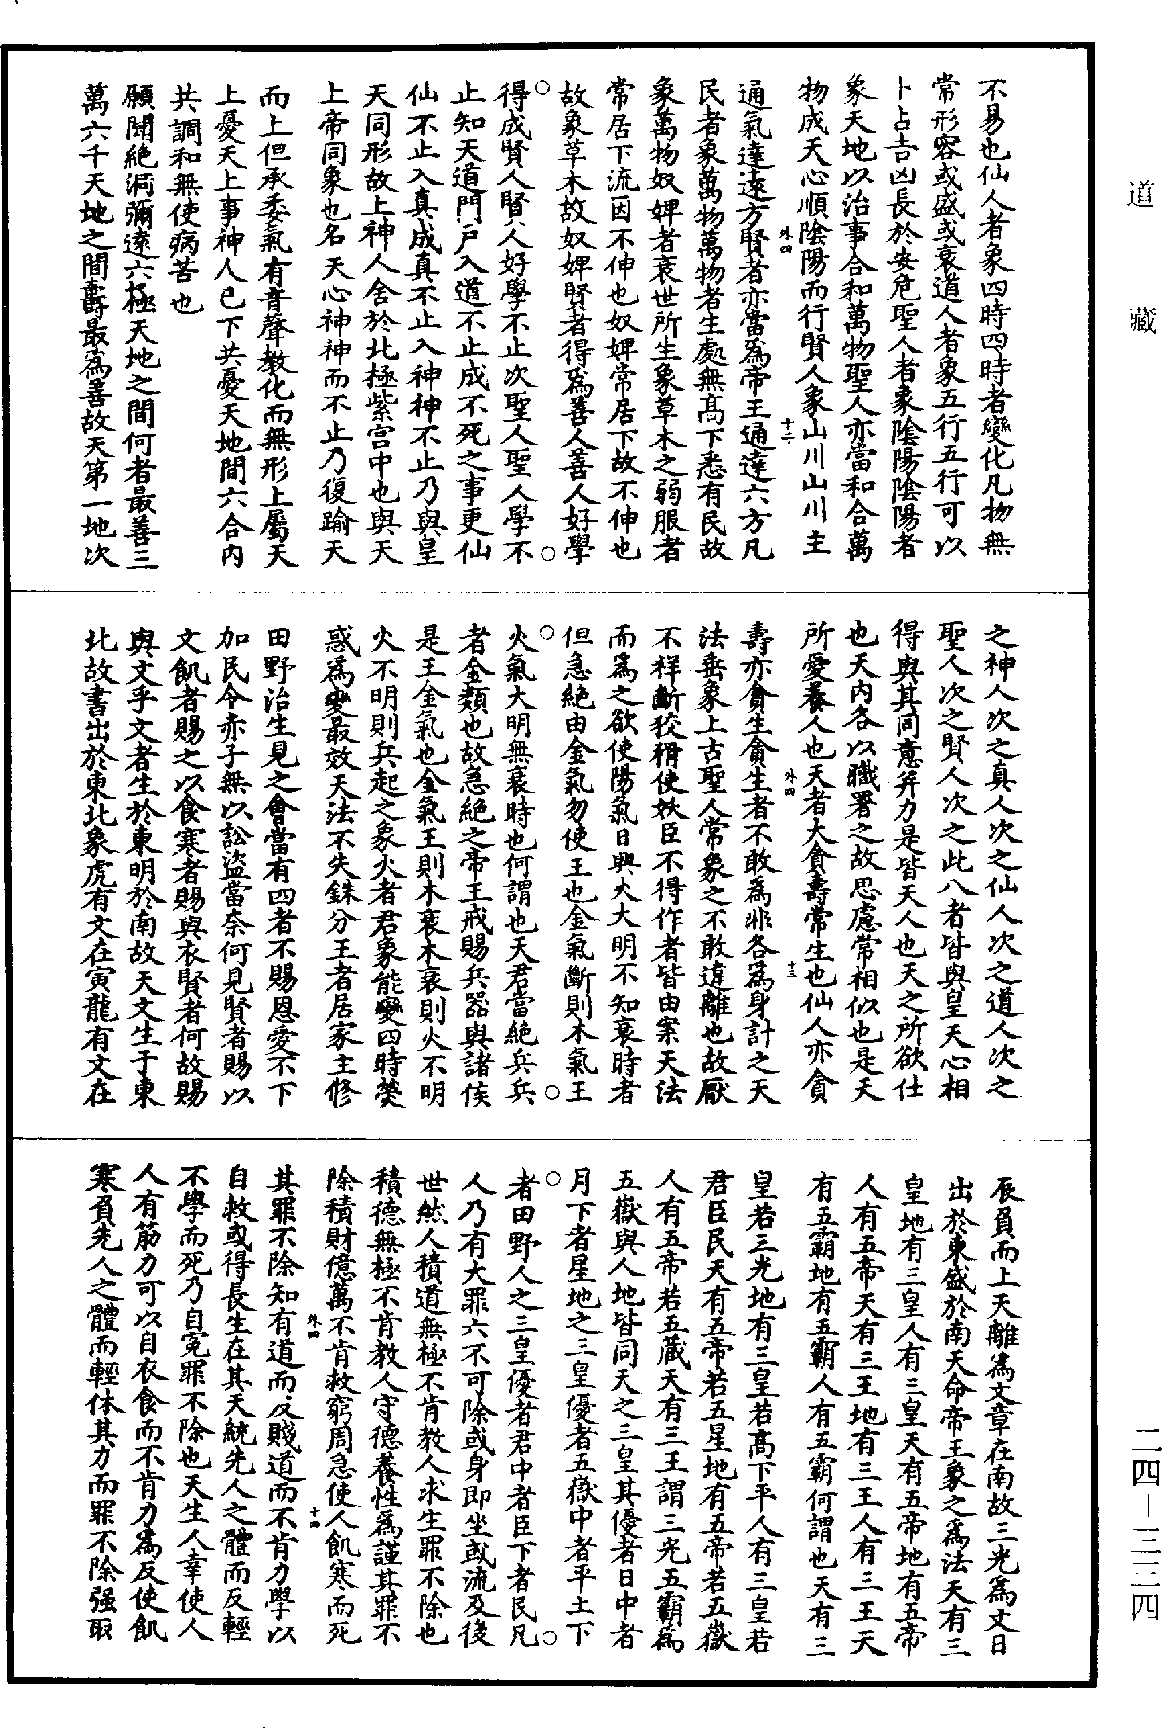 不易也仙人者象四時四時者變化凡物無
常形容或盛或衰道人者象五行五行可以
卜占吉凶長於安危聖人者象陰陽陰陽者
象天地以治事合和萬物聖人亦當和合萬
物成天心順陰陽而行賢人象山川山川主
外四
十二
通氣達遠方賢者亦當為帝王通達六方凡
民者象萬物萬物者生處無高下悉有民故
象萬物奴婢者衰世所生象草木之弱服者
常居下流因不伸也奴婢常居下故不伸也
故象草木故奴婢賢者得為善人善人好學
得成賢人賢人好學不止次聖人聖人學不
止知天道門戶入道不止成不死之事更仙
仙不止入真成真不止入神神不止乃與皇
天同形故上神人舍於北極紫宫中也與天
上帝同象也名天心神神而不止乃復踰天
而上但承委氣有音聲教化而無形上屬天
上憂天上事神人已下共憂天地間六合内
共調和無使病苦也
願聞絕洞彌遠六極天地之間何者最善三
萬六千天地之間壽最為善故天第一地次
之神人次之真人次之仙人次之道人次之
聖人次之賢人次之此八者皆與皇天心相
得與其同意并力是皆天人也天之所欲仕
也天内各以職署之故思慮常相似也是天
所愛養人也天者大貪壽常生也仙人亦貪
外四
十三
壽亦貪生貪生者不敢為非各為身計之天
法垂象上古聖人常象之不敢違離也故厭
不祥斷狡猾使妖臣不得作者皆由案天法
而為之欲使陽氣日興火大明不知衰時者
但急絕由金氣勿使王也金氣斷則木氣王
火氣大明無衰時也何謂也天君當絕兵兵
者金類也故急絕之帝王戒賜兵器與諸侯
是王金氣也金氣王則木衰木衰則火不明
火不明則兵起之象火者君象能變四時熒
惑為變最效天法不失銖分王者居家主修
田野治生見之會當有四者不賜恩愛不下
加民令赤子無以訟盜當奈何見賢者賜以
文飢者賜之以食寒者賜與衣賢者何故賜
與文乎文者生於東明於南故天文生于東
北故書出於東北象虎有文在寅龍有文在
辰負而上天離為文章在南故三光為文日
出於東盛於南天命帝王象之為法天有三
皇地有三皇人有三皇天有五帝地有五帝
人有五帝天有三王地有三王人有三王天
有五霸地有五霸人有五霸何謂也天有三
皇若三光地有三皇若高下平人有三皇若
君臣民天有五帝若五星地有五帝若五嶽
人有五帝若五藏天有三王謂三光五霸為
五嶽與人地皆同天之三皇其優者日中者
月下者星地之三皇優者五嶽中者平土下
者田野人之三皇優者君中者臣下者民凡
人乃有大罪六不可除或身即坐或流及後
世然人積道無極不肯教人求生罪不除也
積德無極不肯教人守德養性為謹其罪不
除積財億萬不肯救窮周急使人飢寒而死
外四
十四
其罪不除知有道而反賤道而不肯力學以
自救或得長生在其天統先人之體而反輕
不學而死乃自冤罪不除也天生人幸使人
人有筋力可以自衣食而不肯力為反使飢
寒負先人之體而輕休其力而罪不除强取
道
藏
二四—三三四